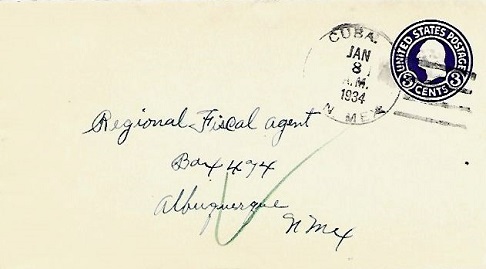 CUBA.
JAN
8
A.M.
1934
N MEX
UNITED STATES POSTAGE
3 CENTS 3
Regional Fiscal agent
Box 494
Albuquerque
N Mex